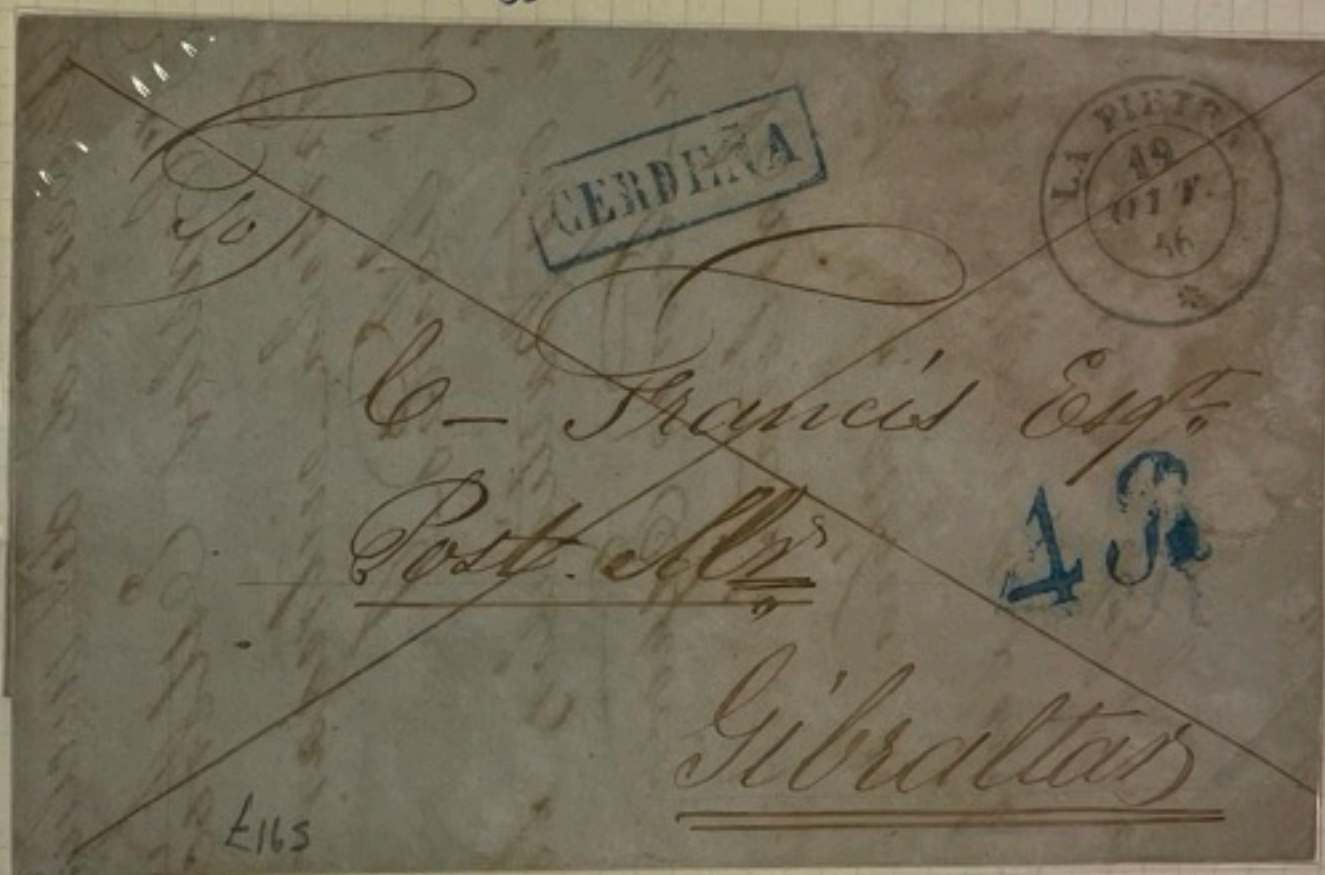 CERDEÑA
LA PIETR
19
OTT.
56
To
C- Francis Esqr
Post. Mr
1 R
Gibraltar
£165